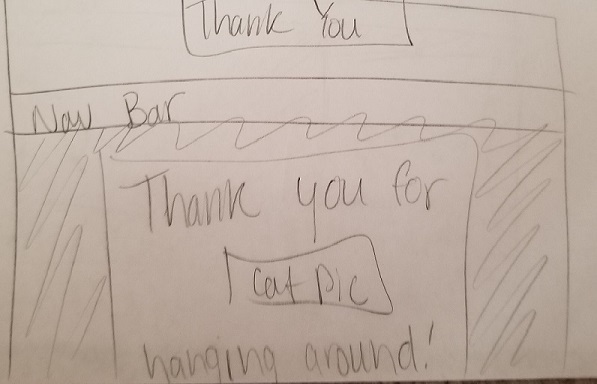 Thank You
Nav Bar
Thank you for
cat pic
hanging around!